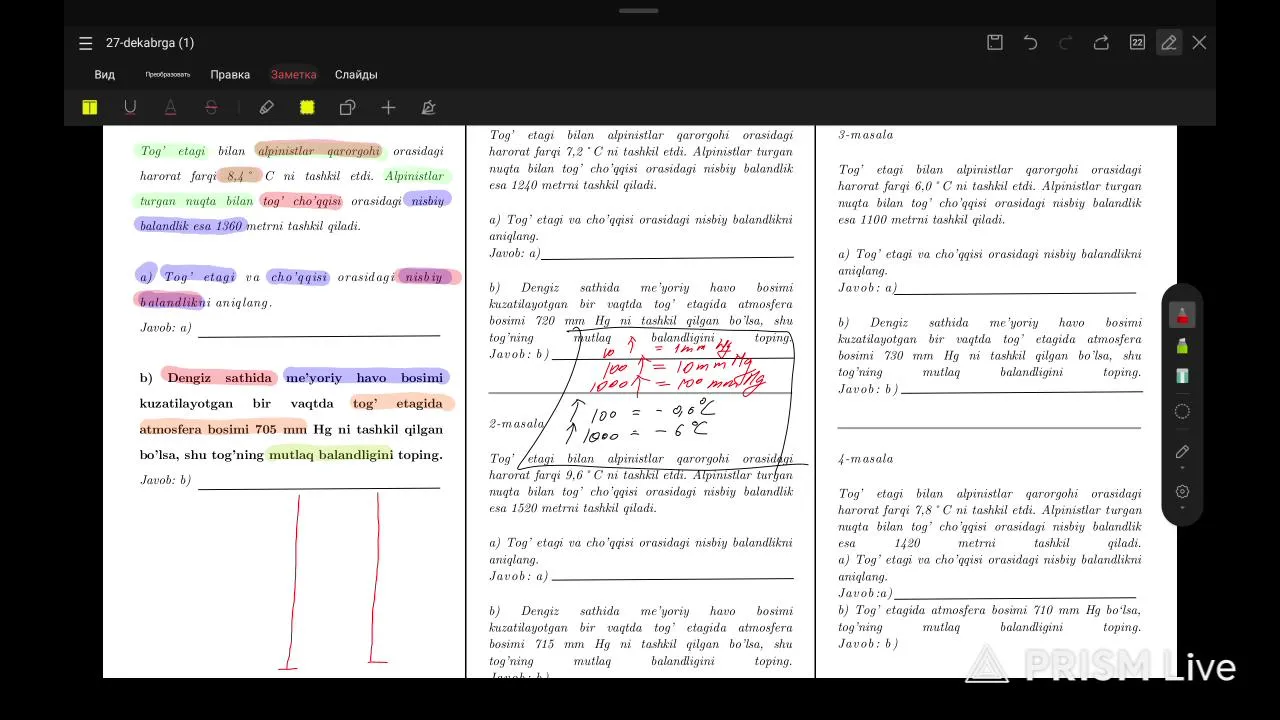 27-dekabrga (1)
22
Вид
Преобразовать
Правка
Заметка
Слайды
Tog' etagi bilan alpinistlar qarorgohi orasidagi
harorat farqi 8,4 ° C ni tashkil etdi. Alpinistlar
turgan nuqta bilan tog' cho'qqisi orasidagi nisbiy
balandlik esa 1360 metrni tashkil qiladi.
a) Tog' etagi va cho'qqisi orasidagi nisbiy
balandlikni aniqlang.
Javob: a)
b) Dengiz sathida me'yoriy havo bosimi
kuzatilayotgan bir vaqtda tog' etagida
atmosfera bosimi 705 mm Hg ni tashkil qilgan
bo'lsa, shu tog'ning mutlaq balandligini toping.
Javob: b)
Tog' etagi bilan alpinistlar qarorgohi orasidagi
harorat farqi 7,2 ° C ni tashkil etdi. Alpinistlar turgan
nuqta bilan tog' cho'qqisi orasidagi nisbiy balandlik
esa 1240 metrni tashkil qiladi.
a) Tog' etagi va cho'qqisi orasidagi nisbiy balandlikni
aniqlang.
Javob: a)
b) Dengiz sathida me'yoriy havo bosimi
kuzatilayotgan bir vaqtda tog' etagida atmosfera
bosimi 720 mm Hg ni tashkil qilgan bo'lsa, shu
tog'ning mutlaq balandligini toping.
Javob: b)
10 ↑ = 1mm Hg
100 ↑ = 10mm Hg
1000 ↑ = 100 mm Hg
↑ 100 = - 0,6°C
↑ 1000 = - 6°C
2-masala
Tog' etagi bilan alpinistlar qarorgohi orasidagi
harorat farqi 9,6 ° C ni tashkil etdi. Alpinistlar turgan
nuqta bilan tog' cho'qqisi orasidagi nisbiy balandlik
esa 1520 metrni tashkil qiladi.
a) Tog' etagi va cho'qqisi orasidagi nisbiy balandlikni
aniqlang.
Javob: a)
b) Dengiz sathida me'yoriy havo bosimi
kuzatilayotgan bir vaqtda tog' etagida atmosfera
bosimi 715 mm Hg ni tashkil qilgan bo'lsa, shu
tog'ning mutlaq balandligini toping.
Javob: b)
3-masala
Tog' etagi bilan alpinistlar qarorgohi orasidagi
harorat farqi 6,0 ° C ni tashkil etdi. Alpinistlar turgan
nuqta bilan tog' cho'qqisi orasidagi nisbiy balandlik
esa 1100 metrni tashkil qiladi.
a) Tog' etagi va cho'qqisi orasidagi nisbiy balandlikni
aniqlang.
Javob: a)
b) Dengiz sathida me'yoriy havo bosimi
kuzatilayotgan bir vaqtda tog' etagida atmosfera
bosimi 730 mm Hg ni tashkil qilgan bo'lsa, shu
tog'ning mutlaq balandligini toping.
Javob: b)
4-masala
Tog' etagi bilan alpinistlar qarorgohi orasidagi
harorat farqi 7,8 ° C ni tashkil etdi. Alpinistlar turgan
nuqta bilan tog' cho'qqisi orasidagi nisbiy balandlik
esa 1420 metrni tashkil qiladi.
a) Tog' etagi va cho'qqisi orasidagi nisbiy balandlikni
aniqlang.
Javob:a)
b) Tog' etagida atmosfera bosimi 710 mm Hg bo'lsa,
tog'ning mutlaq balandligini toping.
Javob: b)
PRISM Live